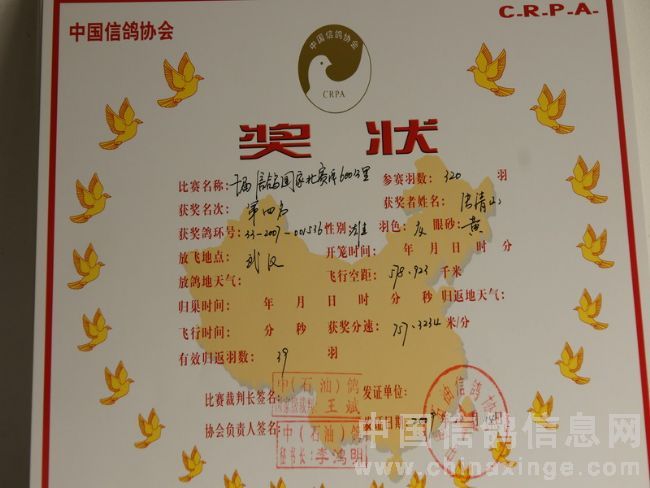 中国信鸽协会
C-R-P-A-
中国信鸽协会
CRPA
奖 状
比赛名称: 信鸽国家比赛 600公里 参赛羽数: 320 羽
获奖名次: 第四名 获奖者姓名: 清山
获奖鸽环号: 33-2007-001536 性别 雄 羽色: 灰 眼砂: 黄
放飞地点: 武汉 开笼时间: 年 月 日 时 分
放鸽地天气: 飞行空距: 578.923 千米
归巢时间: 年 月 日 时 分 秒 归返地天气:
飞行时间: 分 秒 获奖分速: 757.3234 米/分
有效归返羽数: 39 羽
比赛裁判长签名: 中(石油)鸽 王斌 发证单位:
协会负责人签名: 中(石油)鸽 秘书长: 李鸿明 发证日期:
油信鸽协
中国信鸽信息网
www.chinaxinge.com